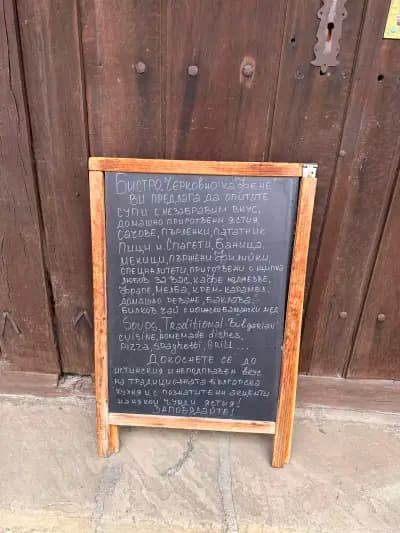 Бистро, Черковно кафене
ви предлага да опитате
супи с незабравим вкус,
домашно приготвени ястия
сачове, пърленки, пататник
пици и спагети, баница,
мекици, пържени филийки,
специалитети, приготвени с щипка
любов за вас, кафе на джезве,
фрапе, мелба, крем-карамел,
домашно реване, баклава,
билков чай с
мед
Soups, Traditional Bulgarian
cuisine, homemade dishes,
pizza, spaghetti, Grill...
Докоснете се до
истинския и неподправен вкус
на традиционната българска
кухня и с познатите ни акценти
на някои чужди ястия!
Заповядайте!